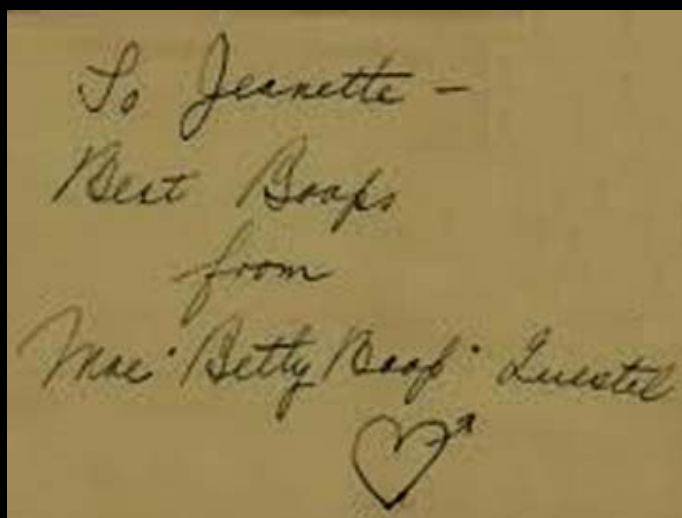 To Jeanette -
Best Boops
from
Mae "Betty Boop" Questel